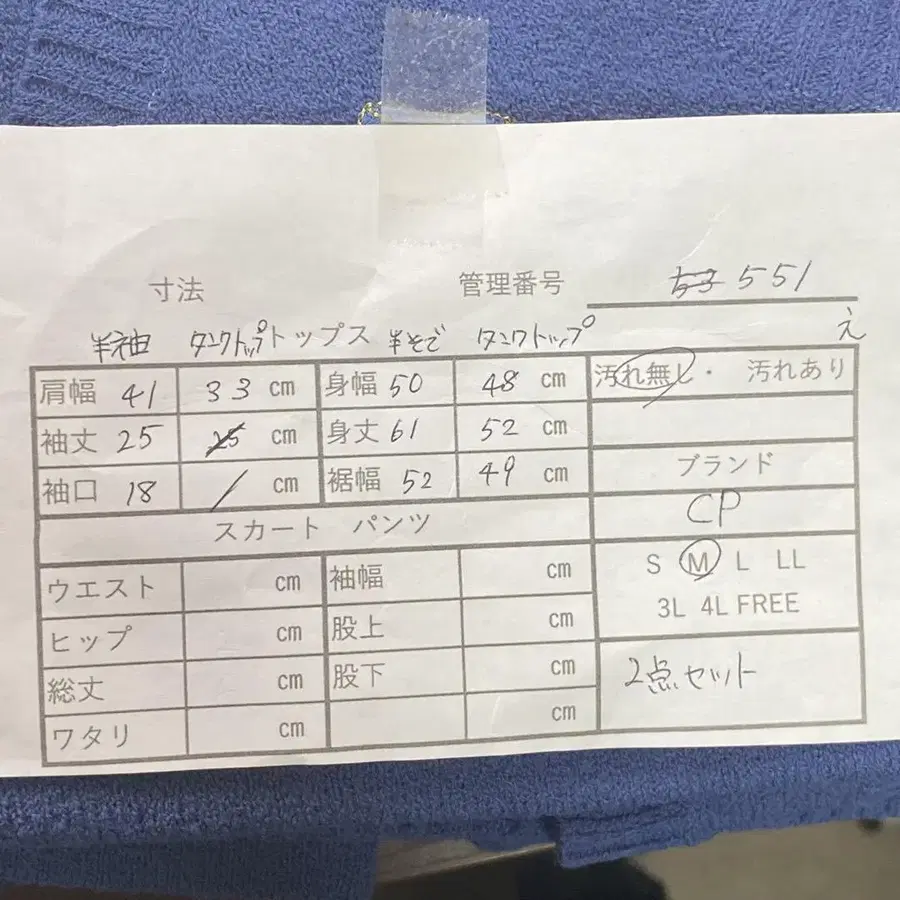 寸法 管理番号 551
え
半袖 タンクトップ トップス 半そで タンクトップ
肩幅 41 33 cm 身幅 50 48 cm 汚れ無し・ 汚れあり
袖丈 25 25 cm 身丈 61 52 cm
袖口 18 / cm 裾幅 52 49 cm ブランド
スカート パンツ CP
ウエスト cm 袖幅 cm S M L LL
ヒップ cm 股上 cm 3L 4L FREE
総丈 cm 股下 cm 2点セット
ワタリ cm cm